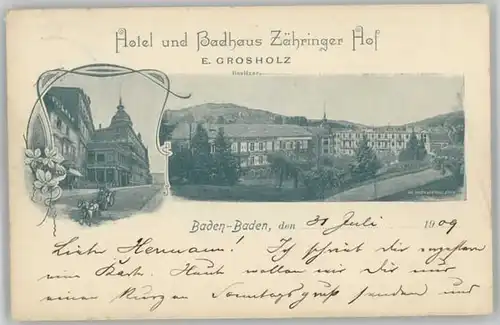 Hotel und Badhaus Zähringer Hof
E. GROSHOLZ
Besitzer.
Baden-Baden, den 31 Juli 1909
Liebe Hermann! Ich schrieb dir
eine Karte. Heut wollen wir Dir nur
einen kurzen Sonntagsgruß senden und